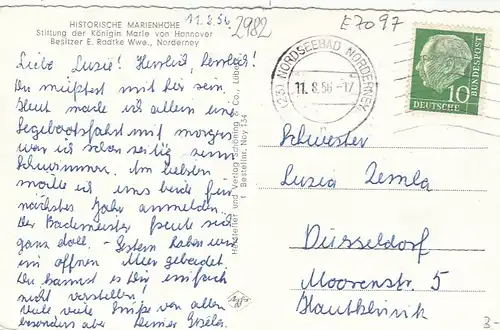 HISTORISCHE MARIENHÖHE
Stiftung der Königin Marie von Hannover
Besitzer E. Radtke Wwe., Norderney
11.8.56
2982
E7097
(23) NORDSEEBAD NORDERNEY
11.8.56-17
DEUTSCHE
BUNDESPOST
10
Liebe Luzie! Herrlich, herrlich!
Du müßtest mit hier sein.
Heut mache ich allein eine
Segelbootsfahrt mit morgens
war ich schon zeitig zum
Schwimmen. Am liebsten
möchte ich uns beide für
nächstes Jahr anmelden.
Der Bademeister freute sich
ganz doll. - Gestern haben wir
im offnen Meer gebadet.
Du kannst es Dir einfach
nicht vorstellen.
Viele viele Grüße von allen
besonders aber Deiner Gisela.
Hersteller und Verlag Schöning & Co., Lübeck
Bestellnr. Noy 134
Schwester
Luzia Zemla
Düsseldorf
Moorenstr. 5
Hautklinik